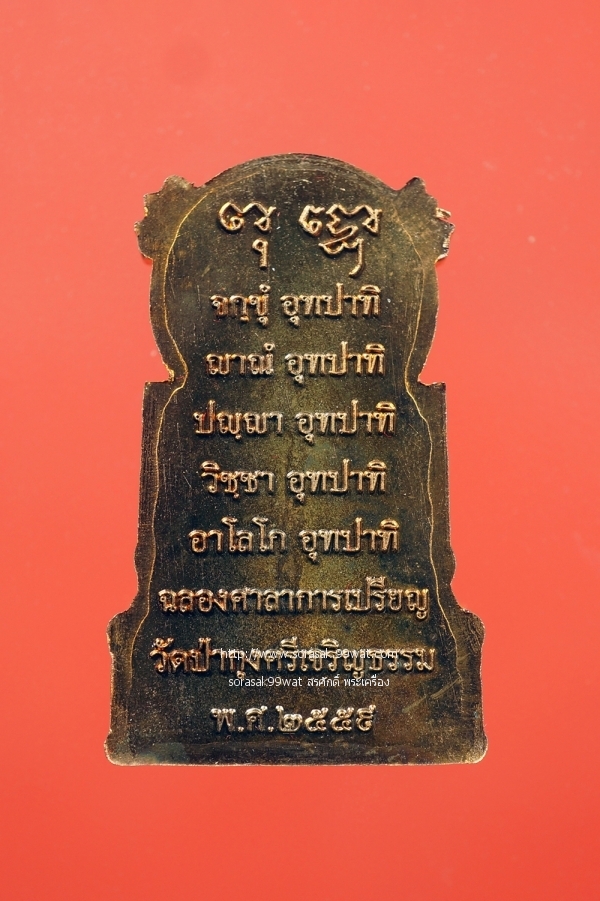 จกฺขุํ อุทปาทิ
ญาณํ อุทปาทิ
ปญฺญา อุทปาทิ
วิชฺชา อุทปาทิ
อาโลโก อุทปาทิ
ฉลองศาลาการเปรียญ
วัดป่ากุงศรีเจริญธรรม
http://www.sorasak.99wat.com
sorasak.99wat สรศักดิ์ พระเครื่อง
พ.ศ.๒๕๕๕